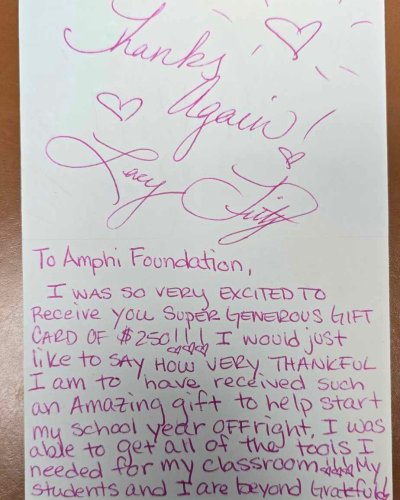 Thanks
Again!
Lacy
To Amphi Foundation,
I WAS SO VERY EXCITED TO
Receive YOU SUPER GENEROUS GIFT
CARD OF $250!!!! I would just
like to SAY HOW VERY THANKFUL
I am to have received such
an Amazing gift to help start
my school year OFF right. I was
able to get all of the tools I
needed for my classroom. My
students and I are beyond Grateful